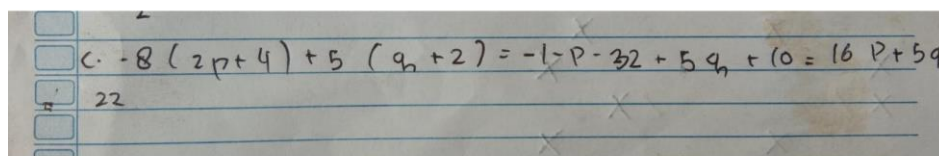 c. -8 (2p+4) + 5 (q +2) = -1-p - 32 + 5q + 10 = 16 p + 5q
22